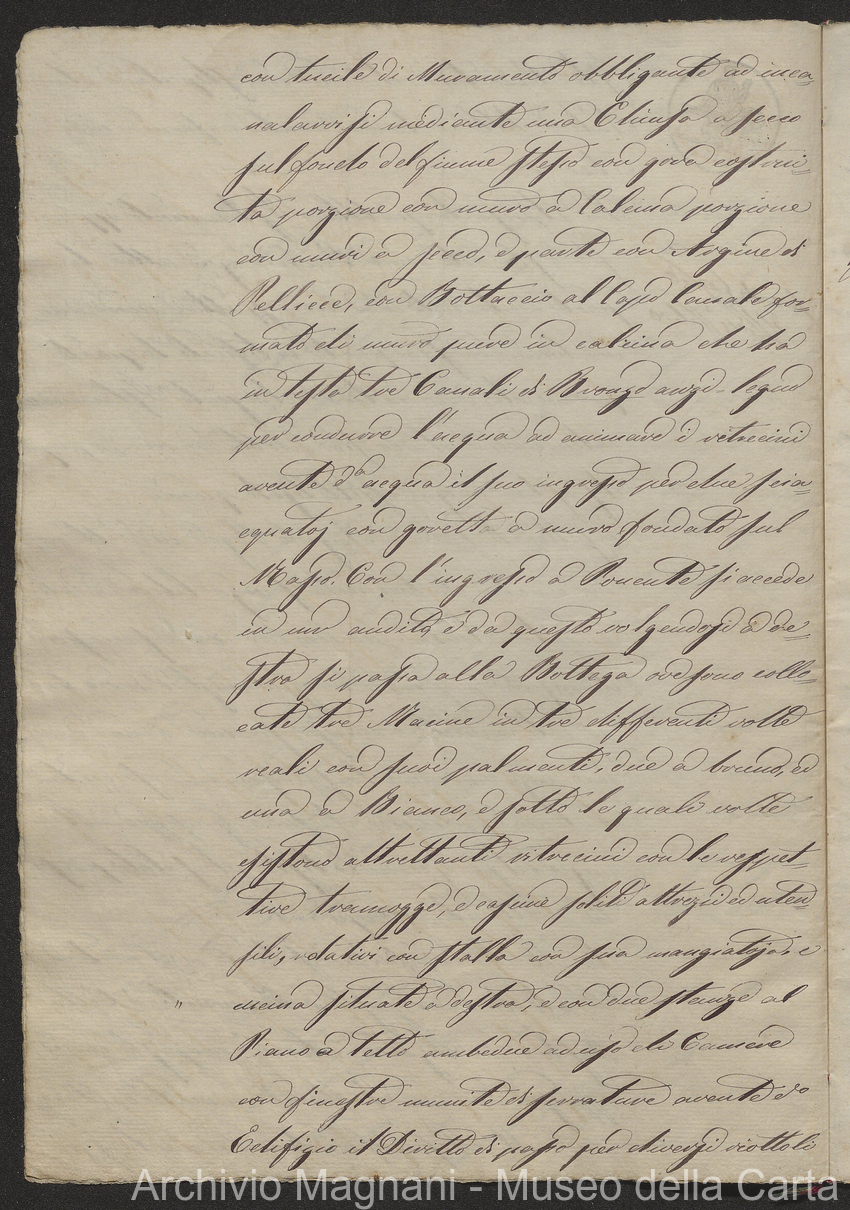 con tueile di Muramento obbligante ad inca-
nalarvisi mediante una Chiusa a secco
sul fondo del fiume stesso con gora costrui=
ta porzione con muro a Calcina porzione
con muri a secco, e parte con Argine di
Pelliccie, con Bottaccio al Capo Canale for=
mato di muro pure in calcina che ha
in testa tre Canali di Bronzo anzi-legno
per condurre l'acqua ad animare i ritrecini
avente d.a acqua il suo ingresso per due scia=
equatoj con goretta a muro fondato sul
Masso. Con l'ingresso a Ponente si accede
in un andito, e da questo volgendosi a de=
stra si passa alla Bottega ove sono collo=
cate tre Macine in tre differenti volte
reali con suoi palmenti, due a bruno, ed
una a Bianco, e sotto le quali volte
esistono altrettanti ritrecini con le respet=
tive tramogge, e casine soliti attrezi ed uten=
sili, relativi con stalla con sua mangiatoja, e
cucina situate a destra, e con due stanze al
Piano a tetto ambedue ad uso di Camere
con finestre munite di serrature avente d.o
Edifizio il Diretto di passo per diversi viottoli
Archivio Magnani - Museo della Carta